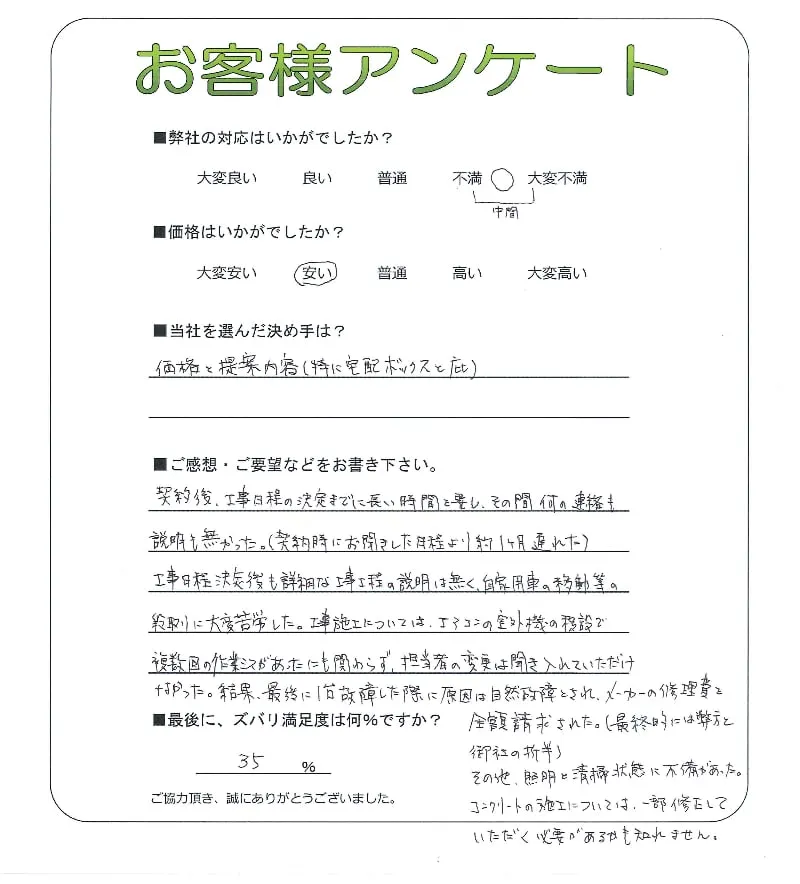 お客様アンケート
■弊社の対応はいかがでしたか?
大変良い 良い 普通 不満 ○ 大変不満
中間
■価格はいかがでしたか?
大変安い 安い 普通 高い 大変高い
■当社を選んだ決め手は?
価格と提案内容(特に宅配ボックスと庇)
■ご感想・ご要望などをお書き下さい。
契約後、工事日程の決定までに長い時間を要し、その間何の連絡も
説明も無かった。(契約時にお聞きした日程より約1ヶ月遅れた)
工事日程決定後も詳細な工事工程の説明は無く、自家用車の移動等の
段取りに大変苦労した。工事施工については、エアコンの室外機の移設で
複数回の作業ミスがあったにも関わらず、担当者の変更は聞き入れていただけ
なかった。結果、最後に1台故障した際に原因は自然故障とされ、メーカーの修理費を
■最後に、ズバリ満足度は何%ですか?
全額請求された。(最終的には弊方と
御社の折半)
35 %
その他、照明と清掃状態に不備があった。
ご協力頂き、誠にありがとうございました。
コンクリートの施工については、一部修正して
いただく必要があるかも知れません。